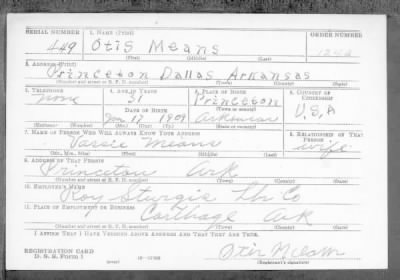 SERIAL NUMBER 1. NAME (Print) ORDER NUMBER
449 Otis Means
(First) (Middle) (Last)
2. ADDRESS (Print)
Princeton Dallas Arkansas
(Number and street or R. F. D. number) (Town) (County) (State)
3. TELEPHONE 4. AGE IN YEARS 5. PLACE OF BIRTH 6. COUNTRY OF CITIZENSHIP
None 31 Princeton
DATE OF BIRTH (Town or county) U.S.A
Jan 17 1909 Arkansas
(Exchange) (Number) (Mo.) (Day) (Yr.) (State or country)
7. NAME OF PERSON WHO WILL ALWAYS KNOW YOUR ADDRESS 8. RELATIONSHIP OF THAT PERSON
Means wife
(Mr., Mrs., Miss) (First) (Middle) (Last)
9. ADDRESS OF THAT PERSON
Princeton Ark
(Number and street or R. F. D. number) (Town) (County) (State)
10. EMPLOYER'S NAME
Roy Sturgis Lbr Co
11. PLACE OF EMPLOYMENT OR BUSINESS
Carthage Ark
(Number and street or R. F. D. number) (Town) (County) (State)
I AFFIRM THAT I HAVE VERIFIED ABOVE ANSWERS AND THAT THEY ARE TRUE.
REGISTRATION CARD
D. S. S. Form 1 Otis Means
(Registrant's signature)